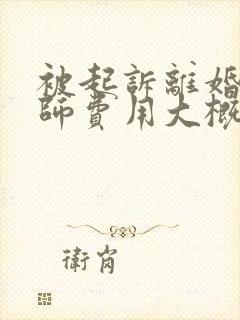 被起訴離婚
師費用大概
衛崗